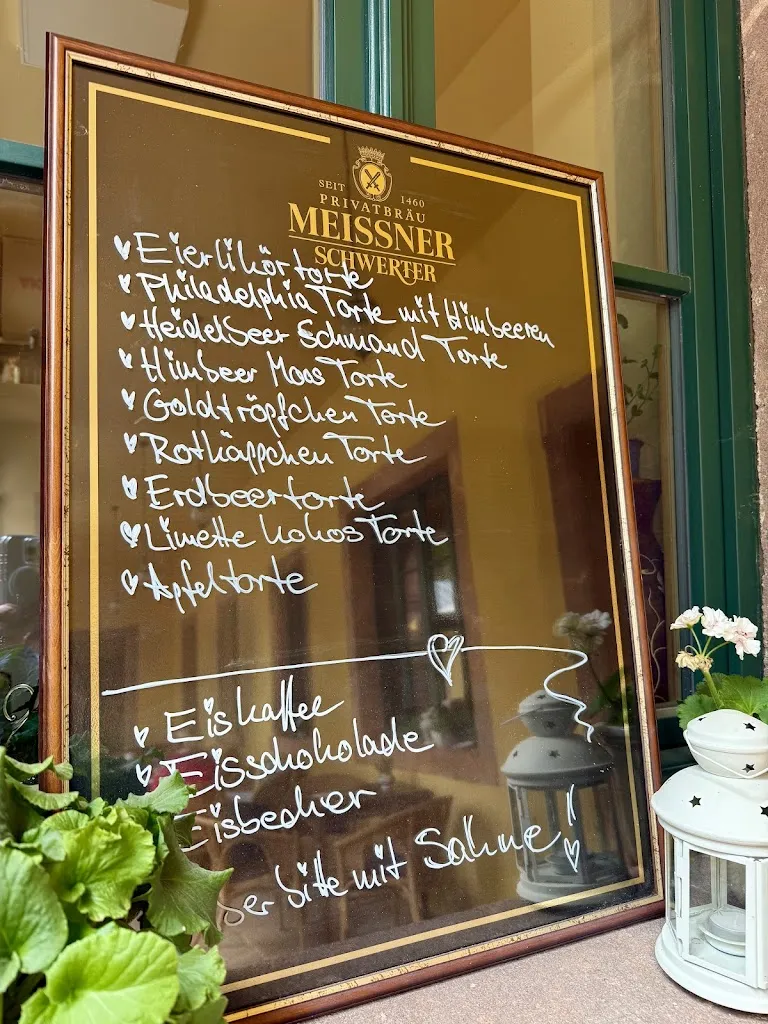 SEIT 1460
PRIVATBRÄU
MEISSNER
SCHWERTER
Eierlikörtorte
Philadelphia Torte mit Himbeeren
Heidelbeer Schmand Torte
Himbeer Moos Torte
Goldtröpfchen Torte
Rotkäppchen Torte
Erdbeertorte
Limette Kokos Torte
Apfeltorte
Eiskaffee
Eisschokolade
Eisbecher
bitte mit Sahne!